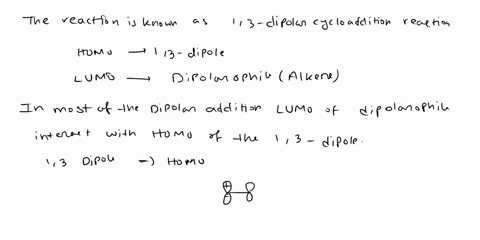 The reaction is known as 1,3-dipolar cycloaddition reaction
HOMO → 1,3-dipole
LUMO → Dipolarophile (Alkene)
In most of the Dipolar addition LUMO of dipolarophile
interact with HOMO of the 1,3-dipole.
1,3 Dipole → Homo
+
-